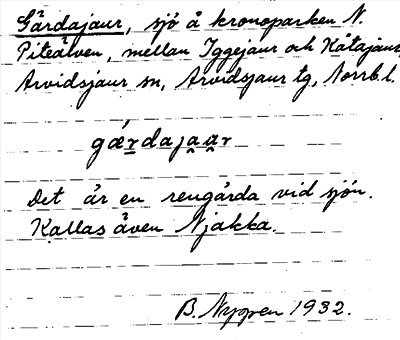 Gärdajaur, sjö å kronoparken N.
Piteälven, mellan Iggejaur och Kåtajaur,
Arvidsjaur sn, Arvidsjaur tg, Norrb.l.
gǽrdaja̯u̯r
Det är en rengärda vid sjön.
Kallas även Njakka.
B. Nygren 1932.